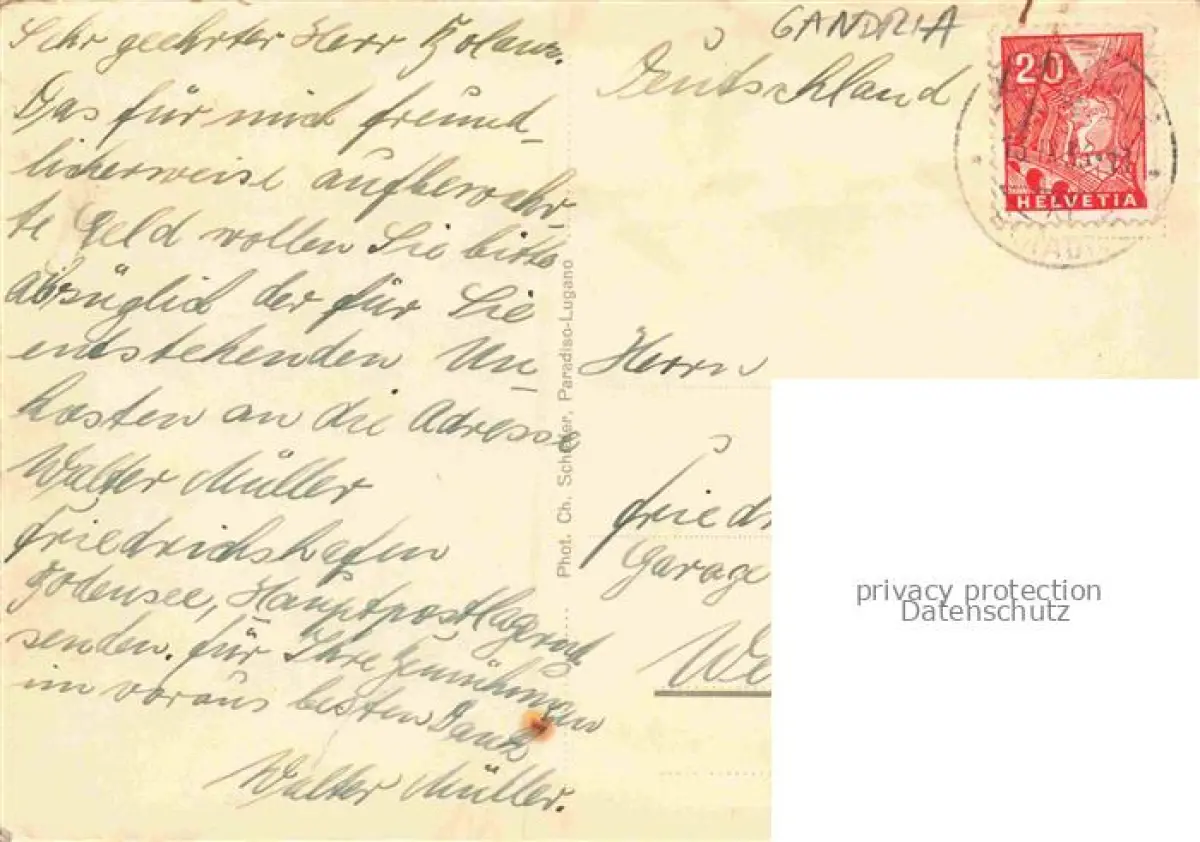 Sehr geehrter Herr
Das für mich freund-
licherweise aufbewahr-
te Geld wollen Sie bitte
abzüglich der für Sie
entstehenden Un-
kosten an die Adresse
Walter Müller
Friedrichshafen
Bodensee, Hauptpostlagernd
senden. Für Ihre Bemühungen
im voraus besten Dank
Walter Müller.
Phot. Ch. Paradiso-Lugano
GANDRIA
Deutschland
20
HELVETIA
Herrn
Friedr
Garage
We
privacy protection
Datenschutz